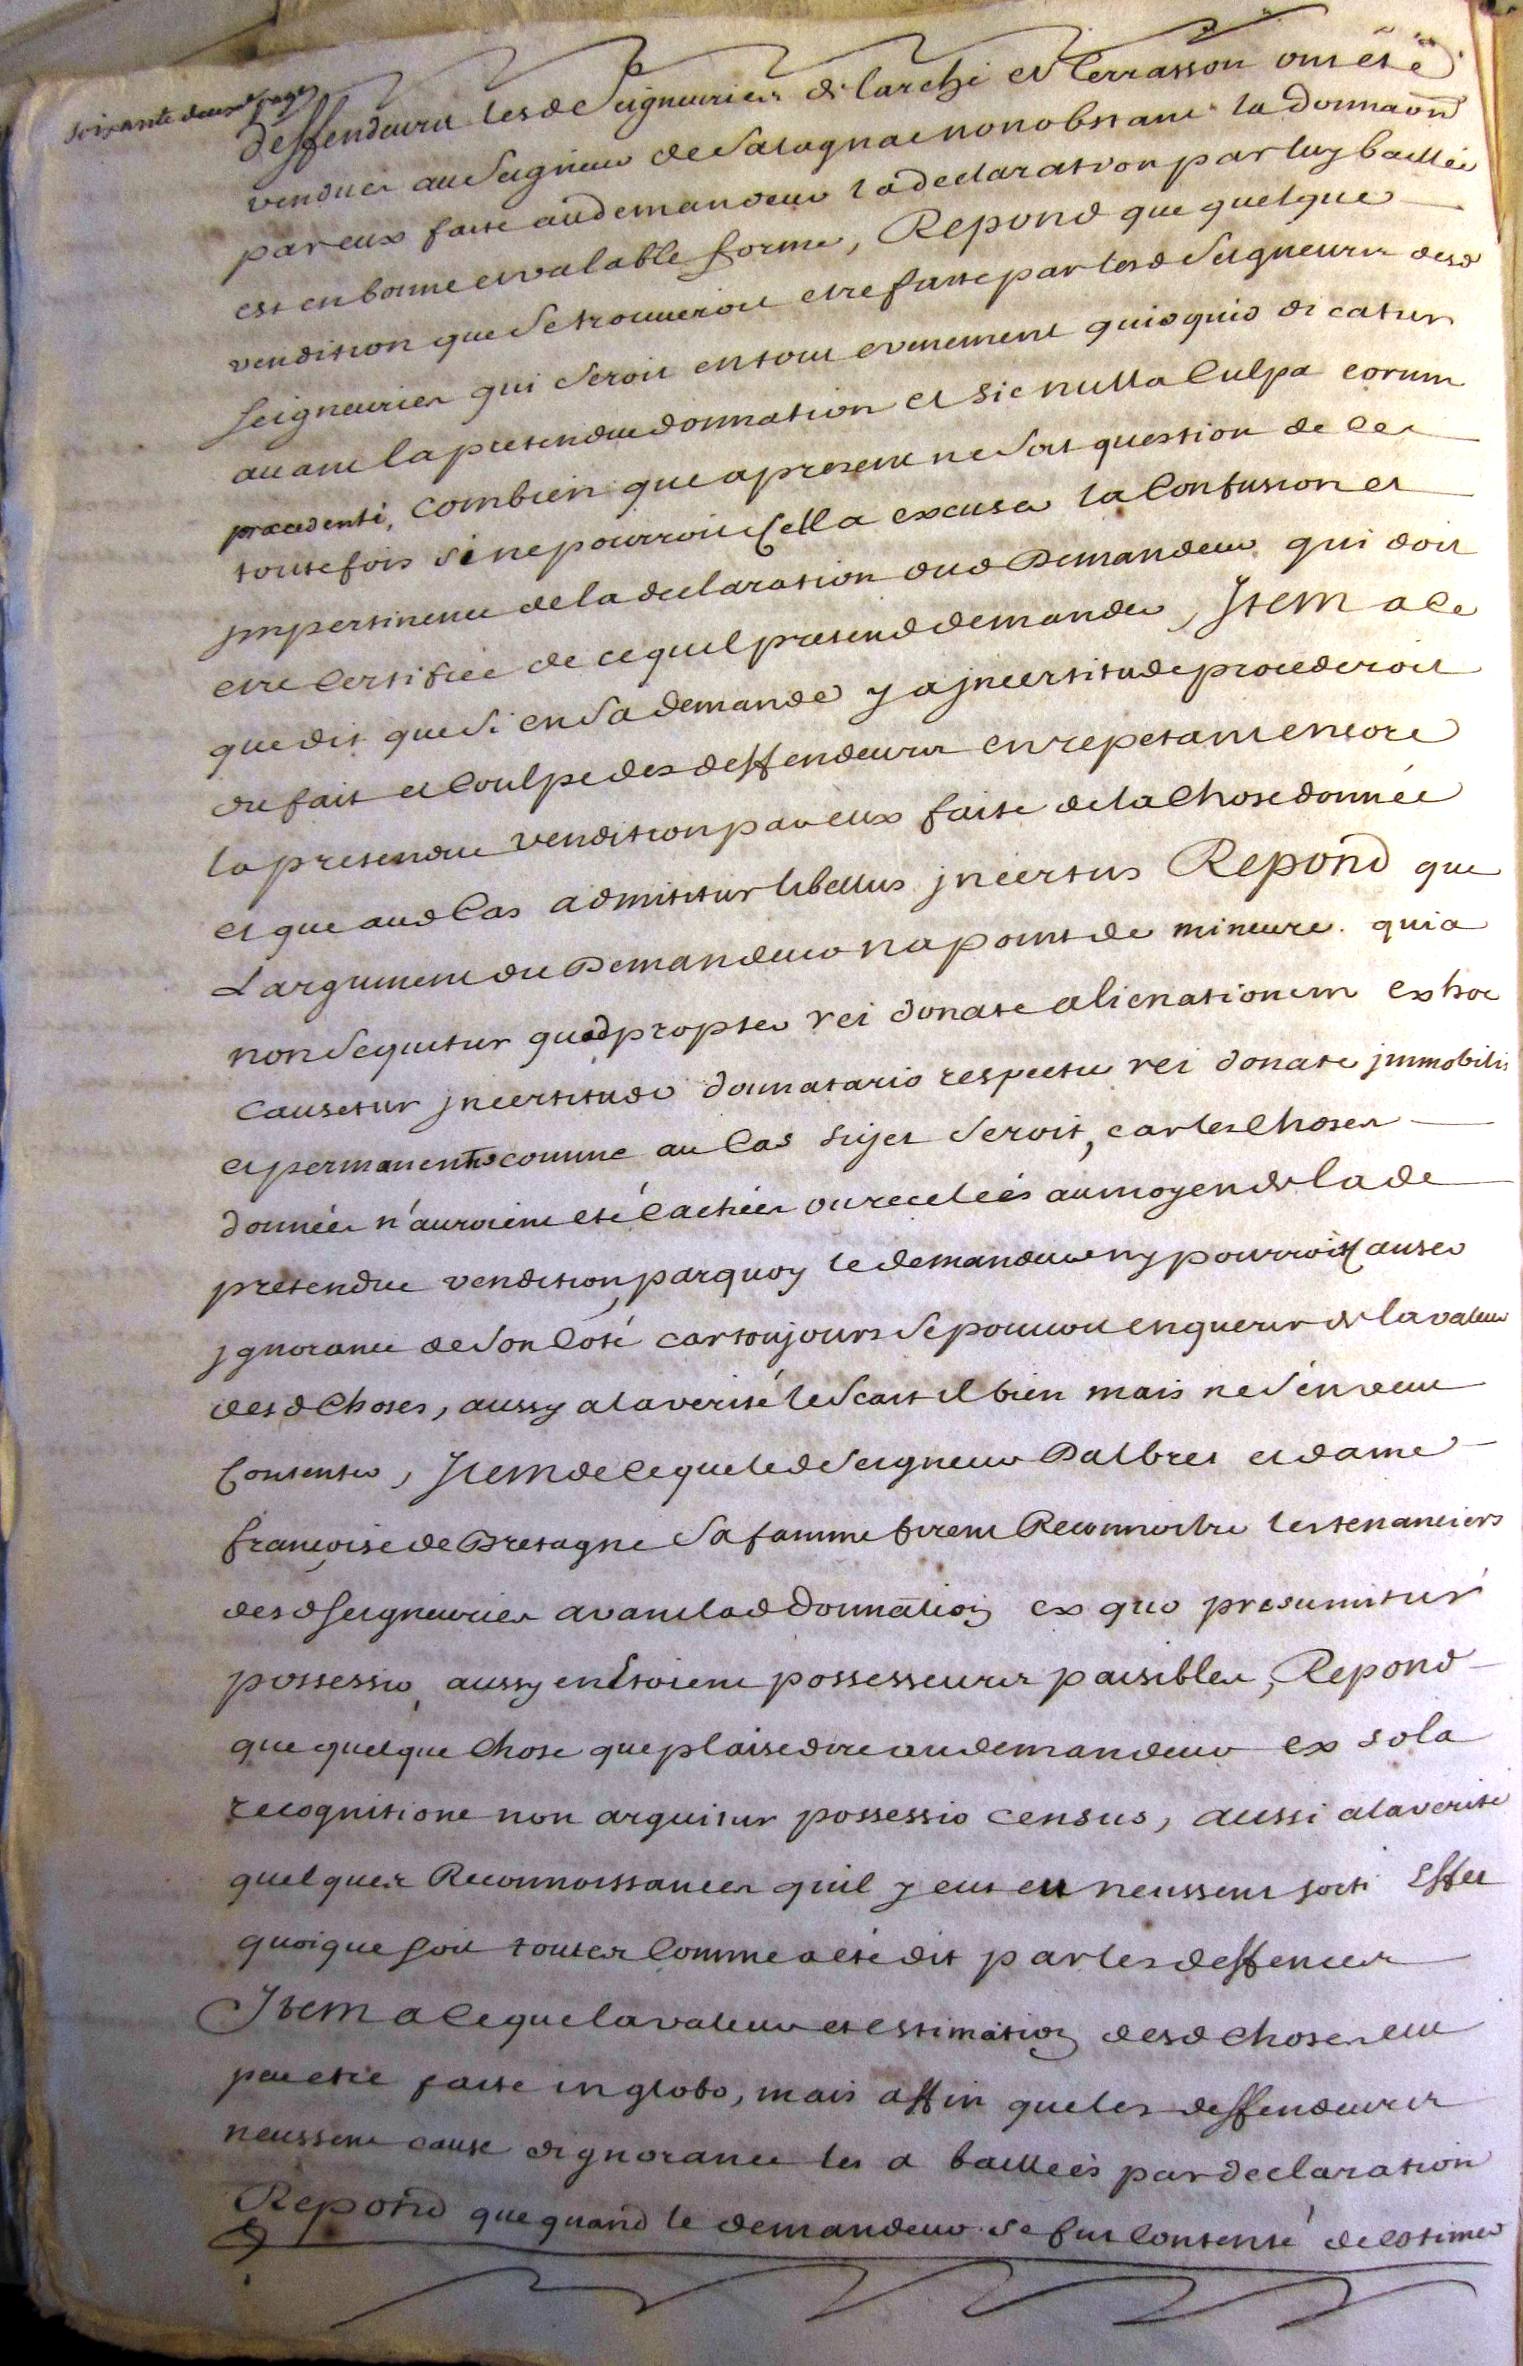 soixante deuxe page
deffendeurs lesd seigneuries de larche et Terrasson ont eté
vendues au seigneur de salagnac nonobstant la donnaon
par eux faite aud demandeur la declaration par luy baillée
est en bonne et valable forme, Repond que quelque
vendition que se trouveroit etre faitte par lesd seigneurs desd
seigneuries qui seroit en tout evenement quidquid dicatur
avant la pretendue donnation et sic nulla Culpa eorum
præcedenti, combien que apresent ne soit question de ce
toutefois si ne pourroit cella excuser la Confusion et
jmpertinence de la declaration dud Demandeur qui doit
etre Certifiée de ce quil pretend demander, Jtem a ce
que dit que si en sa demande y a jncertitude procederoit
du fait et Coulpe des deffendeurs en repetant encore
la pretendue vendition par eux faite de la Chose donnée
et que aud Cas admititur libellus jncertus Repond que
Largument du Demandeur na point de mineure quia
non sequitur quod propter rei donate alienationem ex hoc
Causetur jncertitudo donnatario respectu rei donate jmmobilis
et permanentis comme au Cas sujet seroit, car les Choses
données n'auroient eté Cachées ou recelées au moyen de lade
pretendue vendition, parquoy le demandeur ny pourroit Causer
jgnorance de son Coté car toujours se pouvoit enquerir de la valeur
desd Choses, aussy a la verité le scait il bien mais ne s'en veut
Contenter, Jtem de ce que led seigneur Dalbret et dame
françoise de Bretagne sa famme firent Reconnoitre les tenanciers
desd seigneuries avant lad donnation ex quo presumitur
possessio, aussy en Etoient possesseurs paisibles, Repond
que quelque Chose que plaise dire au demandeur ex sola
recognitione non arguitur possessio census, aussi a la verité
quelques Reconnoissances quil y eut en neussent sorti Effet
quoique soit toutes Comme a eté dit par les deffences
Jtem a Ce que la valeur et estimation desd Choses eut
peu etre faite in globo, mais affin que les deffendeurs
neussent cause dignorance les a baillées par declaration
Repond que quand le demandeur se fut Contenté de lestimer